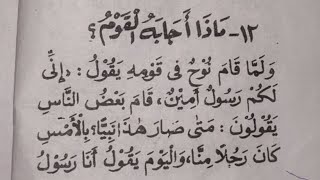 ١٢- مَاذَا أَجَابَهُ الْقَوْمُ ؟
وَلَمَّا قَامَ نُوْحٌ فِى قَوْمِهِ يَقُوْلُ : « إِنِّى
لَكُمْ رَسُوْلٌ أَمِيْنٌ » ، قَامَ بَعْضُ النَّاسِ
يَقُوْلُوْنَ : مَتٰى صَارَ هٰذَا نَبِيًّا ؟ بِالْأَمْسِ
كَانَ رَجُلًا مِنَّا ، وَالْيَوْمَ يَقُوْلُ أَنَا رَسُوْلُ